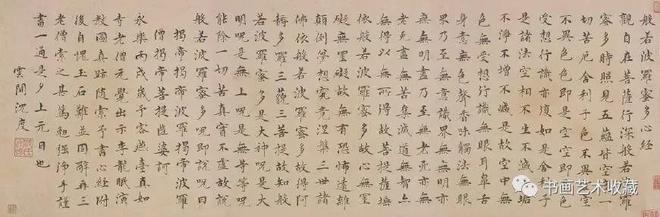 般若波羅蜜多心經
觀自在菩薩行深般若波羅
蜜多時照見五蘊皆空度一
切苦厄舍利子色不異空空
不異色色即是空空即是色
受想行識亦復如是舍利子
是諸法空相不生不滅不垢
不淨不增不減是故空中無
色無受想行識無眼耳鼻舌
身意無色聲香味觸法無眼
界乃至無意識界無無明亦
無無明盡乃至無老死亦無
老死盡無苦集滅道無智亦
無得以無所得故菩提薩埵
依般若波羅蜜多故心無罣
礙無罣礙故無有恐怖遠離
顛倒夢想究竟涅槃三世諸
佛依般若波羅蜜多故得阿
耨多羅三藐三菩提故知般
若波羅蜜多是大神呪是大
明呪是無上呪是無等等呪
能除一切苦真實不虛故說
般若波羅蜜多呪即說呪曰
揭帝揭帝般羅揭帝般羅
僧揭帝菩提薩婆訶
永樂丙戌歲予客燕臺真如
寺老僧元覺出示李龍眠演
教圖真跡隨索予書心經附
後自愧玉石難並固辭再三
老僧索之甚篤勉強沐手謹
書一通是夕上元日也
雲間沈度
书画艺术收藏